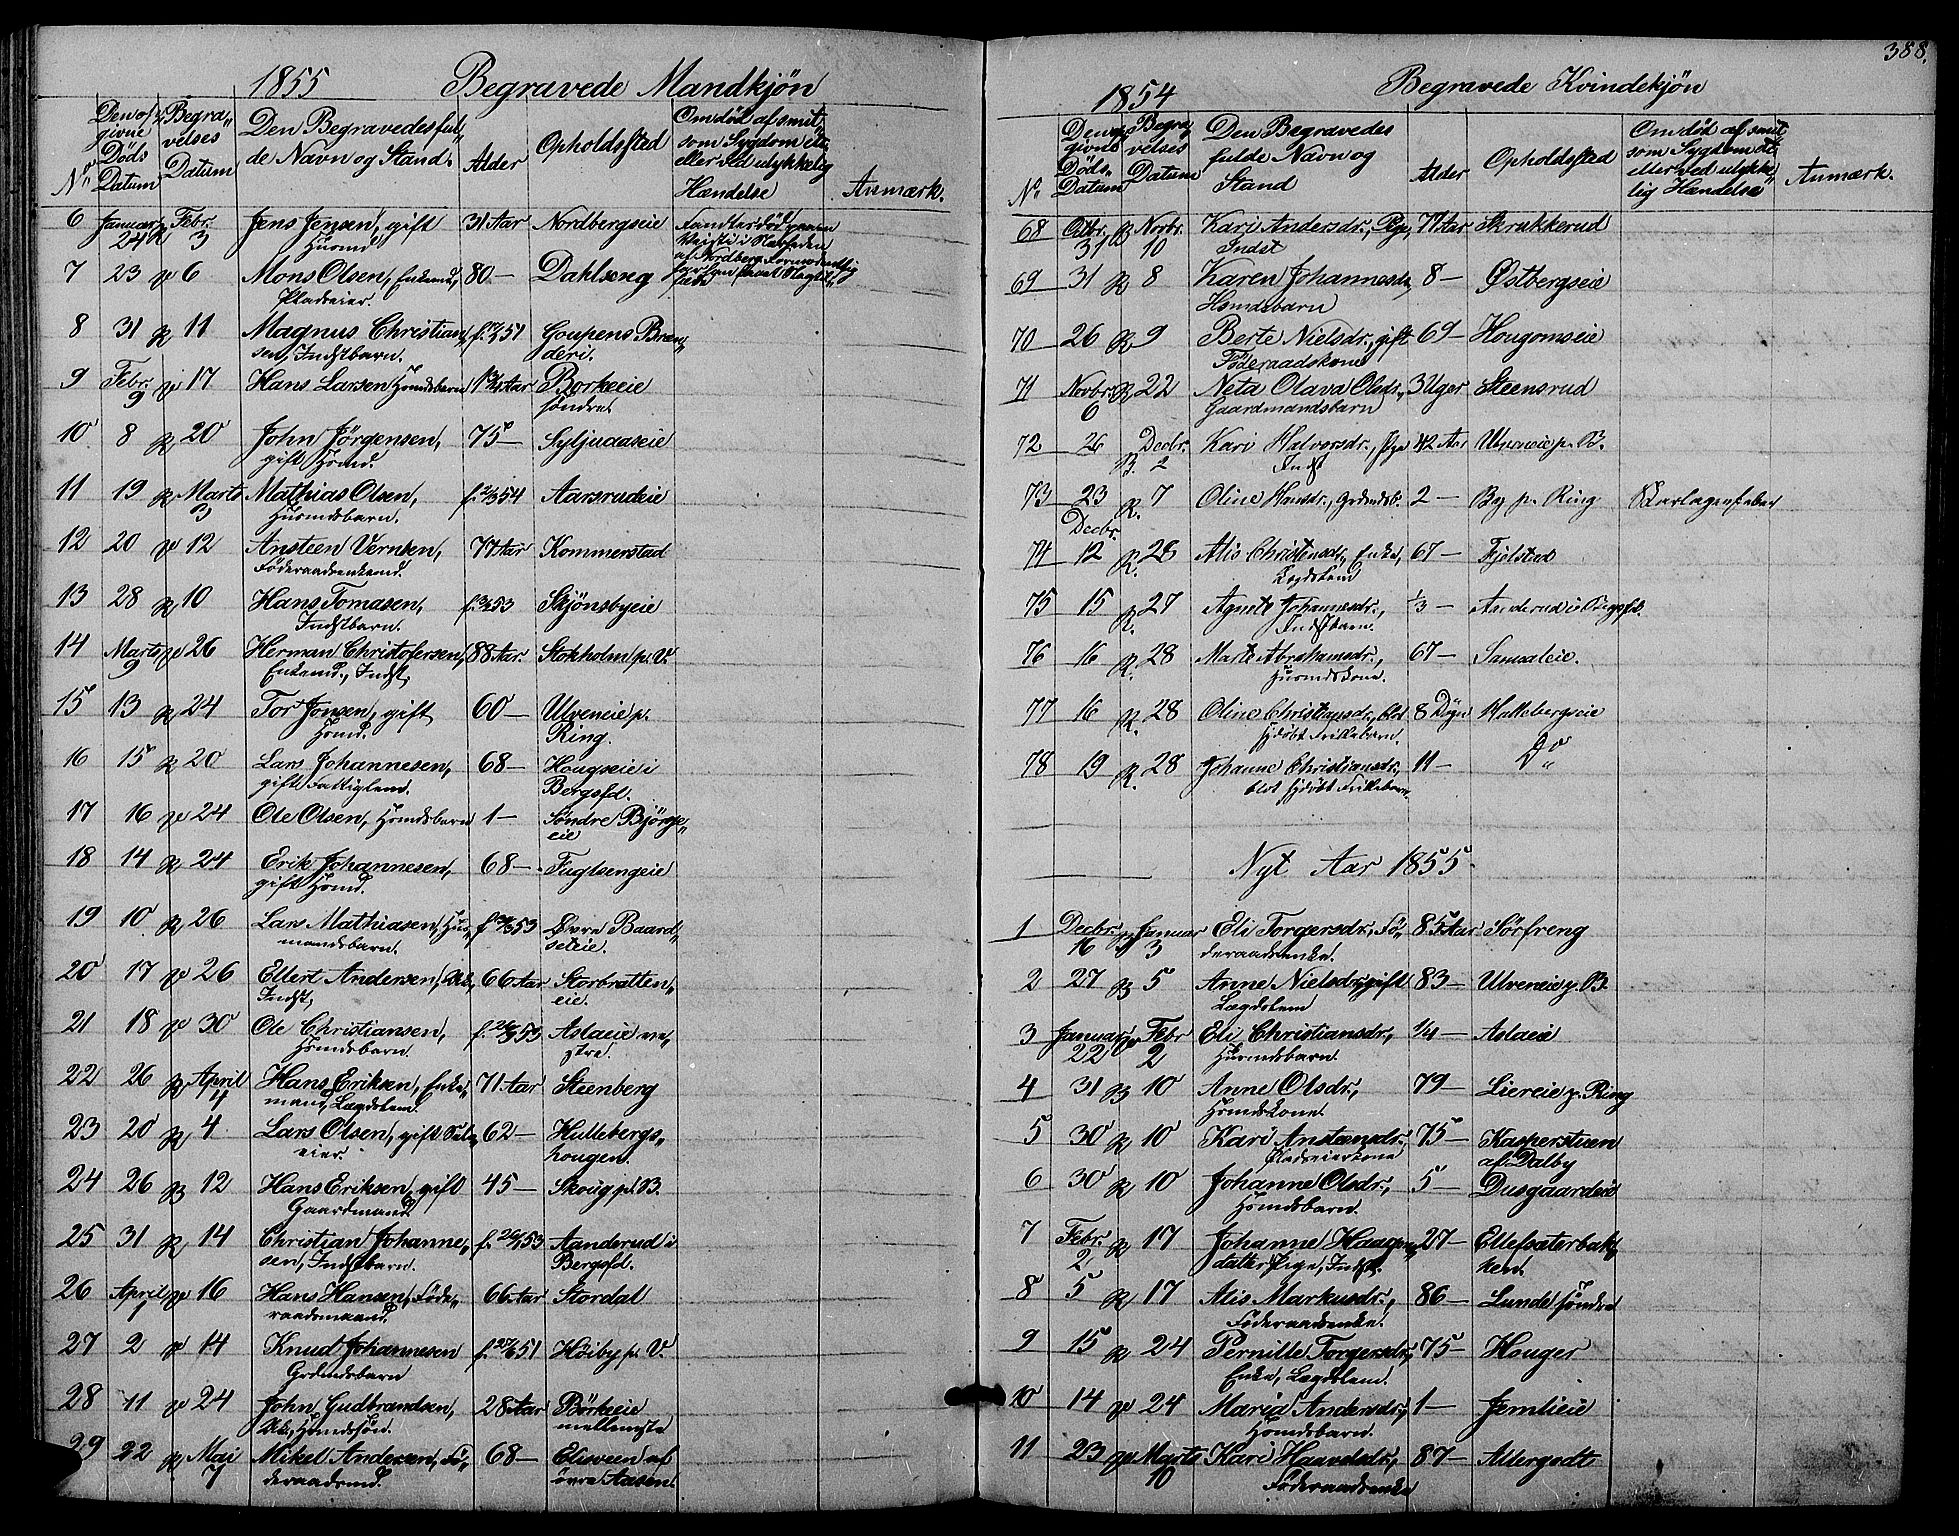 1855 Begravede Mandkjøn
No Den opgivne Døds Datum Begravelses Datum Den Begravedes fulde Navn og Stand. Alder Opholdssted Om død af smitsom Sygdom etc. eller ved ulykkelig Hændelse Anmærk.
6 Januar 24 Febr. 3 Jens Jensen, gift Husmd. 31 Aar Nordbergseie
7 23 6 Mons Olsen, Enkemd., Pladseier. 80 — Dahlseng
8 31 11 Magnus Christiansen, Indstbarn. 51 Goupens Brænderi.
9 Febr. 9 17 Hans Larsen Hsmdsbarn Aar Borkeeie søndre
10 8 20 John Jörgensen, gift Hsmd. 75 — Syljuaaseie
11 19 Marts 3 Mathias Olsen, Husmdsbarn. 54 Aarsrudeie
12 20 12 Ansteen Föderaadsenkemd. 77 Aar Kommerstad
13 28 10 Hans Tomasen, Indstbarn. 53 Skjönsbyeie
14 Marts 9 26 Herman Christofersen, Enkemd., Indst. 88 Aar. Stokholm p. V.
15 13 24 Tor Jonsen, gift Hsmd. 60 — Ulveneie p. Ring.
16 15 20 Lars Johannesen, gift Fattiglem. 68 — Hougseie i Bergsfd.
17 16 24 Ole Olsen, Hsmdsbarn 1 — Søndre Björgeeie
18 14 24 Erik Johannesen, gift Hsmd. 68 — Fuglsengeie
19 10 26 Lars Mathiasen, Husmandsbarn. 53 Øvre Baardseteie.
20 17 26 Ellert Andersen, Indst, 66 Aar Storbratteneie.
21 18 30 Ole Christiansen, Hsmdsbarn. 53 Aslaeie vestre.
22 26 April 4 Hans Eriksen, Enkemand, Lægdslem. 71 Aar Steenberg
23 20 4 Lars Olsen, gift Selveier. 62 — Hullebergshougen.
24 26 12 Hans Eriksen, gift Gaardmand 45 — Skoug p. B.
25 31 14 Christian Johannesen, Indstbarn. 53 Aanderud i Bergsfd.
26 April 1 16 Hans Hansen, Föderaadsmand 66 Aar Stordal
27 2 14 Knud Johannesen Grdmdsbarn 51 Höiby p. V.
28 11 24 John Gudbrandsen, Hsmdssön. 28 Aar Börkeeie mellemste
29 22 Mai 7 Mikel Andersen, Föderaadsmd. 68 — Elisveen af övre Aasen.
388.
1854 Begravede Kvindekjøn
No. Den opgivne Døds Datum Begravelses Datum Den Begravedes fulde Navn og Stand Alder Opholdssted Om død af smitsom Sygdom etc. eller ved ulykkelig Hændelse Anmærk.
68 Octbr. 31 Novbr. 10 Kari Andersdr., Pige, Indst 77 Aar Skrukkerud
69 31 8 Karen Johannesdr, Hsmdsbarn 8 — Østbergseie
70 26 9 Berte Nielsdr., gift Föderaadskone 69 — Hougomseie
71 Novbr. 6 22 Neta Olava Olsdr., Gaardmandsbarn 3 Uger Steensrud
72 26 Decbr. 2 Kari Halvorsdr., Pige Indst 42 Aar Ulveneie p. B.
73 23 7 Oline Hansdr., Grdmdsb. 2 — By p. Ring Skarlagensfeber
74 Decbr. 12 28 Alis Christensdr, Enke, Lægdslem 67 — Fjelstad
75 15 27 Agnete Johannesdr., Indstbarn. 1/3 — Anderud i Bergsfd.
76 16 28 Marte Abrahamsdr., Husmdskone. 67 — Samsaleie.
77 16 28 Oline Christiansdr., blot hjdöbt Tvillebarn. 8 Dögn Hallebergseie
78 19 28 Johanne Christiansdr., blot hjdöbt Tvillebarn. 11 — Do
Nyt Aar 1855.
1 Decbr. 16 Januar 3 Eli Torgersdr., Föderaadsenke. 85 Aar Sörfreng
2 27 5 Anne Nielsdr., gift Lægdslem 83 — Ulveneie p. B.
3 Januar 22 Febr 2 Eli Christiansdr., Husmdsbarn. 1/4 — Aslaeie
4 31 10 Anne Olsdr., Hsmdskone. 79 — Liereie p. Ring
5 30 10 Kari Anstensdr., Pladseierkone 75 — Kasperstuen af Dalby
6 30 10 Johanne Olsdr., Hsmdsbarn. 5 — Dusgaardeie
7 Febr. 2 17 Johanne Haagensdatter Pige, Indst. 27 — Ellefsæterbakken.
8 5 17 Alis Markusdr., Föderaadsenke. 86 — Lunde söndre
9 15 24 Pernille Torgersdr., Enke, Lægdslem. 75 — Houger
10 14 24 Maria Andersdr., Hsmdsbarn. 1 — Jemlieie
11 23 Marts 10 Kari Haavelsdr., Föderaadsenke 87 — Allergodt